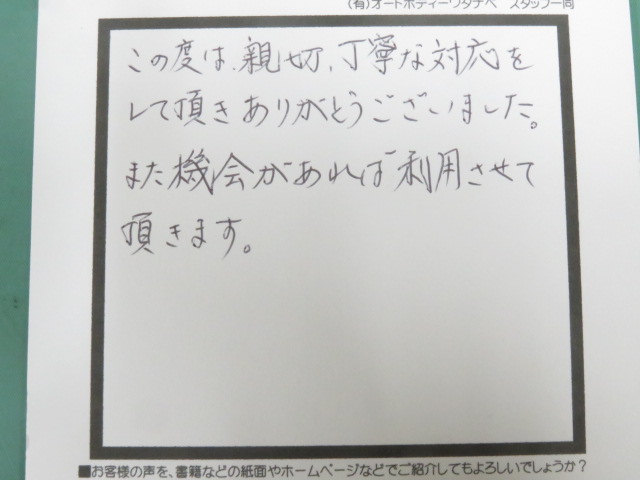 (有)オートボディーワタナベ　スタッフ一同
この度は、親切、丁寧な対応を
して頂きありがとうございました。
また機会があれば利用させて
頂きます。
■お客様の声を、書籍などの紙面やホームページなどでご紹介してもよろしいでしょうか？